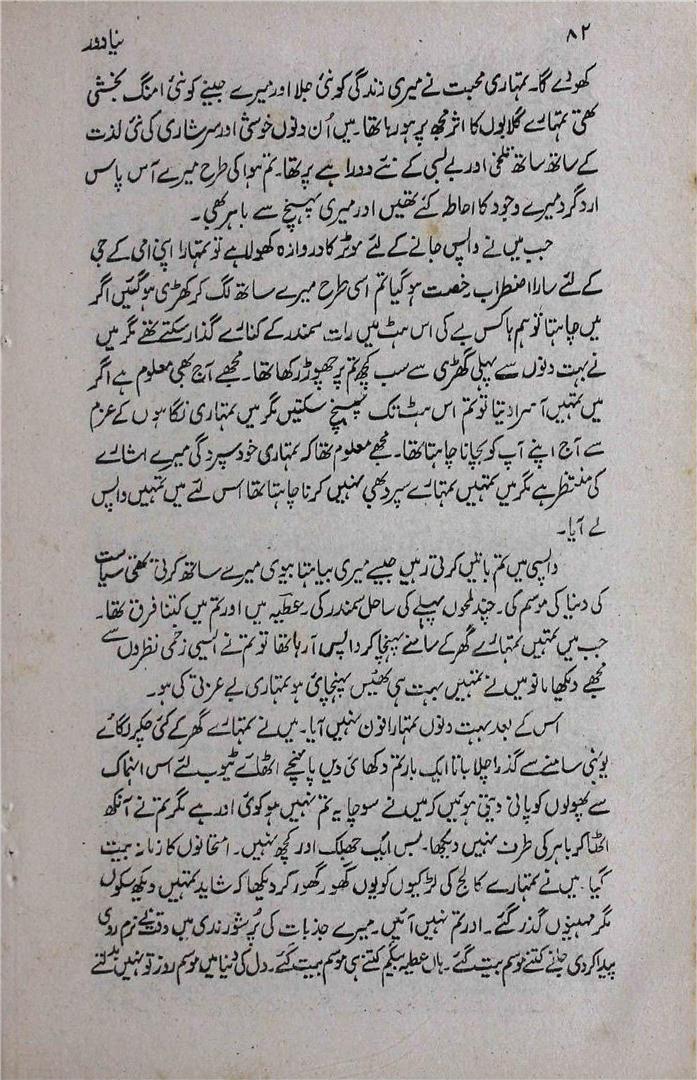 ۸۲
نیا دور
کھو دے گا۔ تمہاری محبت نے میری زندگی کو نئی جلا اور میرے جینے کو نئی امنگ بخشی
تھی تمہارے گلابوں کا اثر مجھ پر ہو رہا تھا۔ میں اُن دنوں خوشی اور سرشاری کی نئی لذت
کے ساتھ ساتھ تلخی اور بے بسی کے نئے دوراہے پر تھا۔ تم ہوا کی طرح میرے آس پاس
اردگرد میرے وجود کا احاطہ کئے تھیں اور میری پہنچ سے باہر تھی۔
جب میں نے واپس جانے کے لئے موٹر کا دروازہ کھولا ہے تو تمہارا اپنی امی کے جی
کے لئے سارا اضطراب رخصت ہو گیا تم اسی طرح میرے ساتھ لگ کر کھڑی ہو گئیں اگر
میں چاہتا تو ہم ہاکس بے کی اس ہٹ میں رات سمندر کے کنارے گذار سکتے تھے مگر میں
نے بہت دنوں سے پہلی گھڑی سے سب کچھ تم پر چھوڑ رکھا تھا۔ مجھے آج بھی معلوم ہے اگر
میں تمہیں آسرا دیتا تو تم اس ہٹ تک پہنچ سکتیں مگر میں تمہاری نگاہوں کے عزم
سے آج اپنے آپ کو بچانا چاہتا تھا۔ مجھے معلوم تھا کہ تمہاری خود سپردگی میرے اشارے
کی منتظر ہے مگر میں تمہیں تمہارے سپرد بھی نہیں کرنا چاہتا تھا اس لئے میں تمہیں واپس
لے آیا۔
واپسی میں تم باتیں کرتی رہیں جیسے میری بیاہتا بیوی میرے ساتھ کرتی تھی سیاست
کی دنیا کی موسم کی۔ چند لمحوں پہلے کی ساحل سمندر کی۔ عطیہ میں اور تم میں کتنا فرق تھا۔
جب میں تمہیں تمہارے گھر کے سامنے پہنچا کر واپس آ رہا تھا تو تم نے ایسی زخمی نظروں سے
مجھے دیکھا مانو میں نے تمہیں بہت ہی ٹھیس پہنچائی ہو تمہاری بے عزتی کی ہو۔
اس کے بعد بہت دنوں تمہارا فون نہیں آیا۔ میں نے تمہارے گھر کے کئی چکر لگائے
یونہی سامنے سے گذرا چلا جاتا ایک بار تم دکھائی دیں پائنچے اٹھائے ٹیوب لئے اس انہماک
سے پھولوں کو پانی دیتی ہوئیں کہ میں نے سوچا یہ تم نہیں ہو کوئی اور ہے مگر تم نے آنکھ
اٹھا کر باہر کی طرف نہیں دیکھا۔ بس ایک جھلک اور کچھ نہیں۔ امتحانوں کا زمانہ بیت
گیا۔ میں نے تمہارے کالج کی لڑکیوں کو یوں گھور گھور کر دیکھا کہ شاید تمہیں دیکھ سکوں
مگر مہینوں گذر گئے۔ اور تم نہیں آئیں۔ میرے جذبات کی پُر شور ندی میں وقت نے نرم روی
پیدا کر دی جانے کتنے موسم بیت گئے۔ ہاں عطیہ بیگم کتنے ہی موسم بیت گئے۔ دل کی دنیا میں موسم روز تو نہیں بدلتے